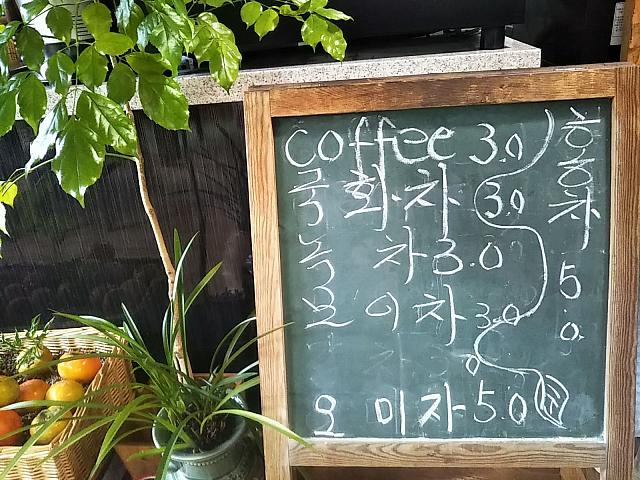 Coffee 3.0
국화차 3.0
녹 차 3.0
모이차 3.0
오미자 5.0
홍차 5.0